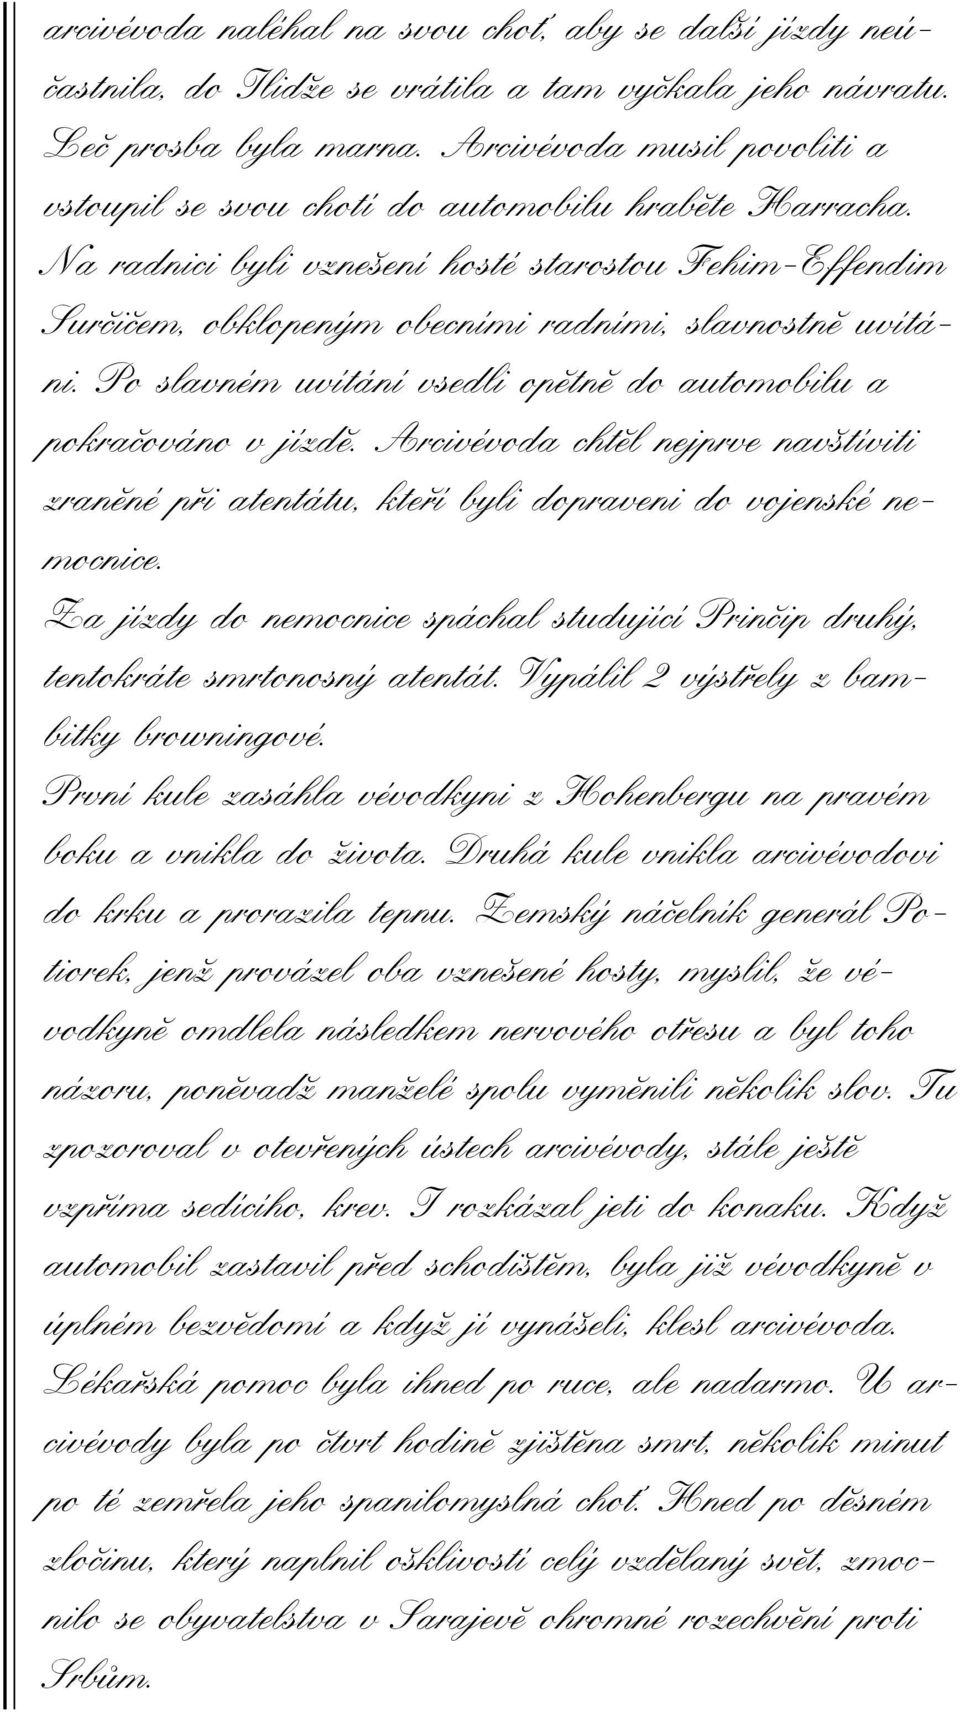 arcivévoda naléhal na svou choť, aby se další jízdy neú-
častnila, do Ilidže se vrátila a tam vyčkala jeho návratu.
Leč prosba byla marna. Arcivévoda musil povoliti a
vstoupil se svou chotí do automobilu hraběte Harracha.
Na radnici byli vznešení hosté starostou Fehim-Effendim
Surčičem, obklopeným obecními radními, slavnostně uvítá-
ni. Po slavném uvítání vsedli opětně do automobilu a
pokračováno v jízdě. Arcivévoda chtěl nejprve navštíviti
zraněné při atentátu, kteří byli dopraveni do vojenské ne-
mocnice.
Za jízdy do nemocnice spáchal studující Prinčip druhý,
tentokráte smrtonosný atentát. Vypálil 2 výstřely z bam-
bitky browningové.
První kule zasáhla vévodkyni z Hohenbergu na pravém
boku a vnikla do života. Druhá kule vnikla arcivévodovi
do krku a prorazila tepnu. Zemský náčelník generál Po-
tiorek, jenž provázel oba vznešené hosty, myslil, že vé-
vodkyně omdlela následkem nervového otřesu a byl toho
názoru, poněvadž manželé spolu vyměnili několik slov. Tu
zpozoroval v otevřených ústech arcivévody, stále ještě
vzpříma sedícího, krev. I rozkázal jeti do konaku. Když
automobil zastavil před schodištěm, byla již vévodkyně v
úplném bezvědomí a když jí vynášeli, klesl arcivévoda.
Lékařská pomoc byla ihned po ruce, ale nadarmo. U ar-
civévody byla po čtvrt hodině zjištěna smrt, několik minut
po té zemřela jeho spanilomyslná choť. Hned po děsném
zločinu, který naplnil ošklivostí celý vzdělaný svět, zmoc-
nilo se obyvatelstva v Sarajevě ohromné rozechvění proti
Srbům.